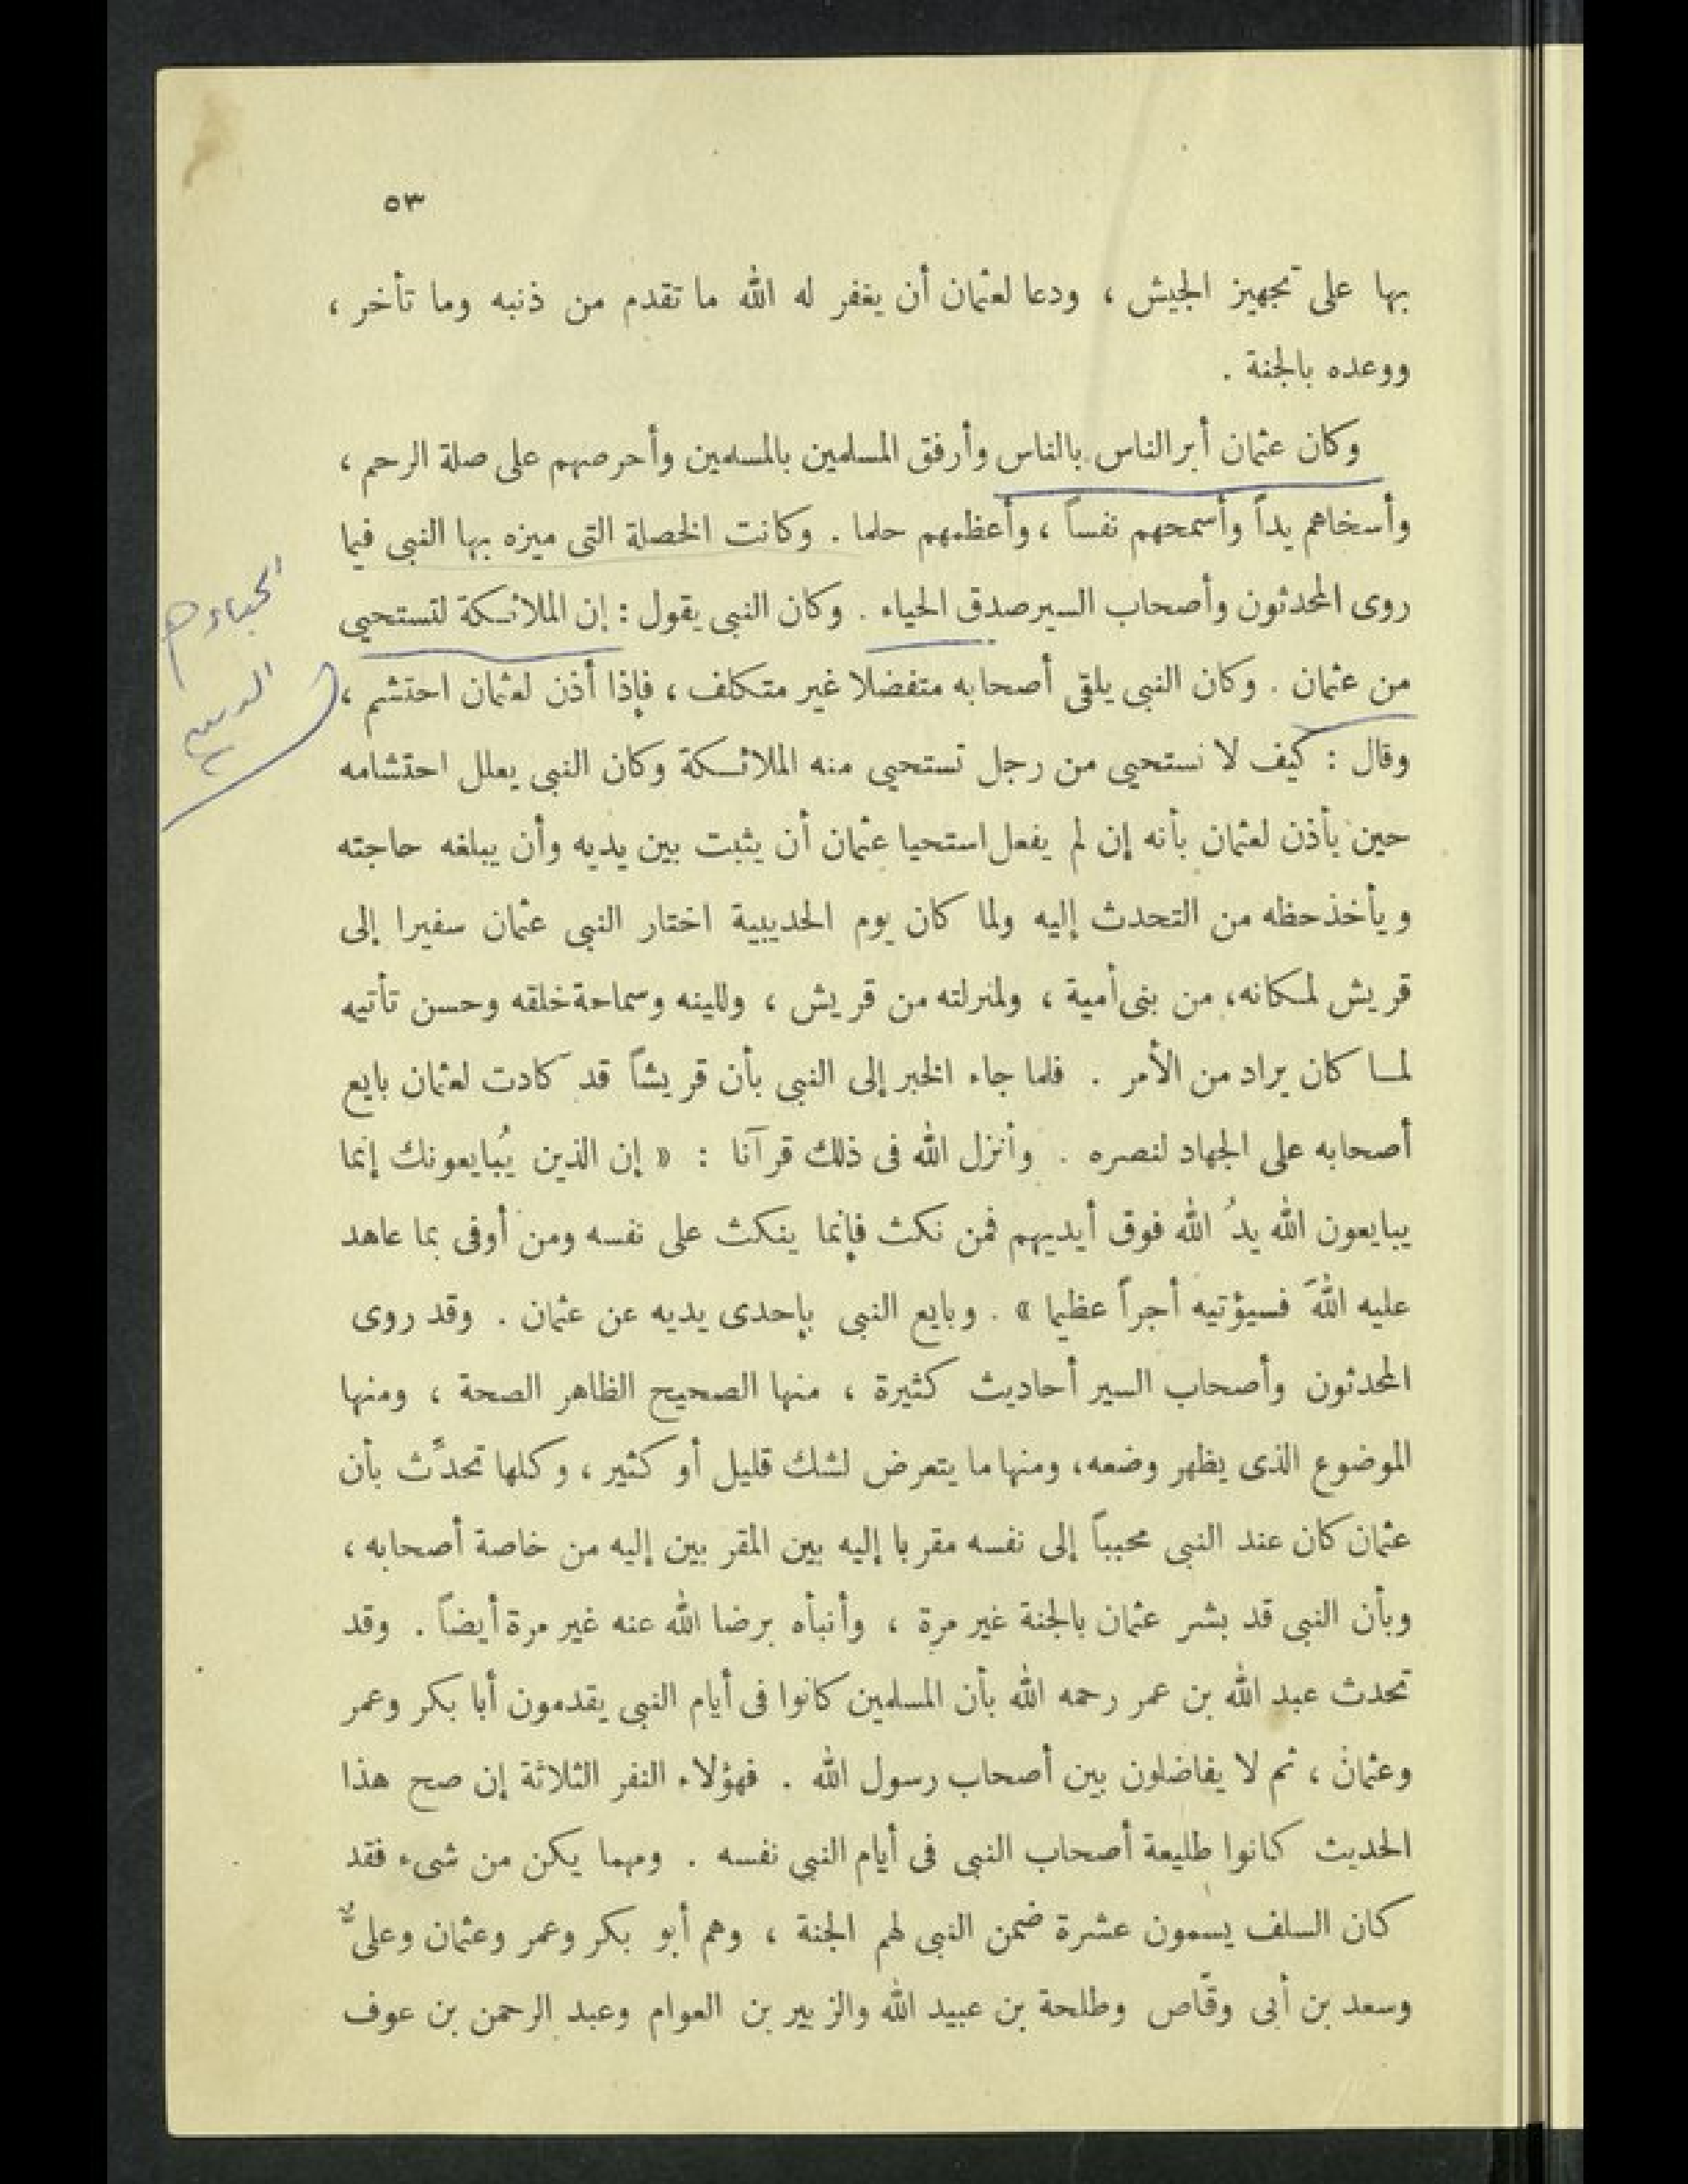 ٥٣
بها على تجهيز الجيش ، ودعا لعثمان أن يغفر له الله ما تقدم من ذنبه وما تأخر ،
ووعده بالجنة .
وكان عثمان أبر الناس بالناس وأرفق المسلمين بالمسلمين وأحرصهم على صلة الرحم ،
وأسخاهم يداً وأسمحهم نفساً ، وأعظمهم حلما . وكانت الخصلة التى ميزه بها النبى فيما
روى المحدثون وأصحاب السير صدق الحياء . وكان النبى يقول : إن الملائكة لتستحيى
من عثمان . وكان النبى يلقى أصحابه متفضلا غير متكلف ، فإذا أذن لعثمان احتشم ،
وقال : كيف لا نستحيى من رجل تستحيى منه الملائكة وكان النبى يعلل احتشامه
حين يأذن لعثمان بأنه إن لم يفعل استحيا عثمان أن يثبت بين يديه وأن يبلغه حاجته
ويأخذ حظه من التحدث إليه ولما كان يوم الحديبية اختار النبى عثمان سفيرا إلى
قريش لمكانه، من بنى أمية ، ولمنزلته من قريش ، وللينه وسماحة خلقه وحسن تأتيه
لما كان يراد من الأمر . فلما جاء الخبر إلى النبى بأن قريشاً قد كادت لعثمان بايع
أصحابه على الجهاد لنصره . وأنزل الله فى ذلك قرآنا : « إن الذين يُبايعونك إنما
يبايعون الله يدُ الله فوق أيديهم فمن نكث فإنما ينكث على نفسه ومن أوفى بما عاهد
عليه اللهَ فسيؤتيه أجراً عظيما » . وبايع النبى بإحدى يديه عن عثمان . وقد روى
المحدثون وأصحاب السير أحاديث كثيرة ، منها الصحيح الظاهر الصحة ، ومنها
الموضوع الذى يظهر وضعه، ومنها ما يتعرض لشك قليل أو كثير ، وكلها تحدَّث بأن
عثمان كان عند النبى محبباً إلى نفسه مقربا إليه بين المقربين إليه من خاصة أصحابه ،
وبأن النبى قد بشر عثمان بالجنة غير مرة ، وأنبأه برضا الله عنه غير مرة أيضاً . وقد
تحدث عبد الله بن عمر رحمه الله بأن المسلمين كانوا فى أيام النبى يقدمون أبا بكر وعمر
وعثمان ، ثم لا يفاضلون بين أصحاب رسول الله . فهؤلاء النفر الثلاثة إن صح هذا
الحديث كانوا طليعة أصحاب النبى فى أيام النبى نفسه . ومهما يكن من شىء فقد
كان السلف يسمون عشرة ضمن النبى لهم الجنة ، وهم أبو بكر وعمر وعثمان وعلىٌّ
وسعد بن أبى وقّاص وطلحة بن عبيد الله والزبير بن العوام وعبد الرحمن بن عوف